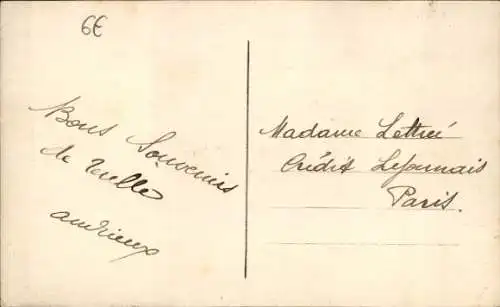 6€
Bons Souvenirs
de
andrieux
Madame Lettrée
Crédit Lyonnais
Paris.